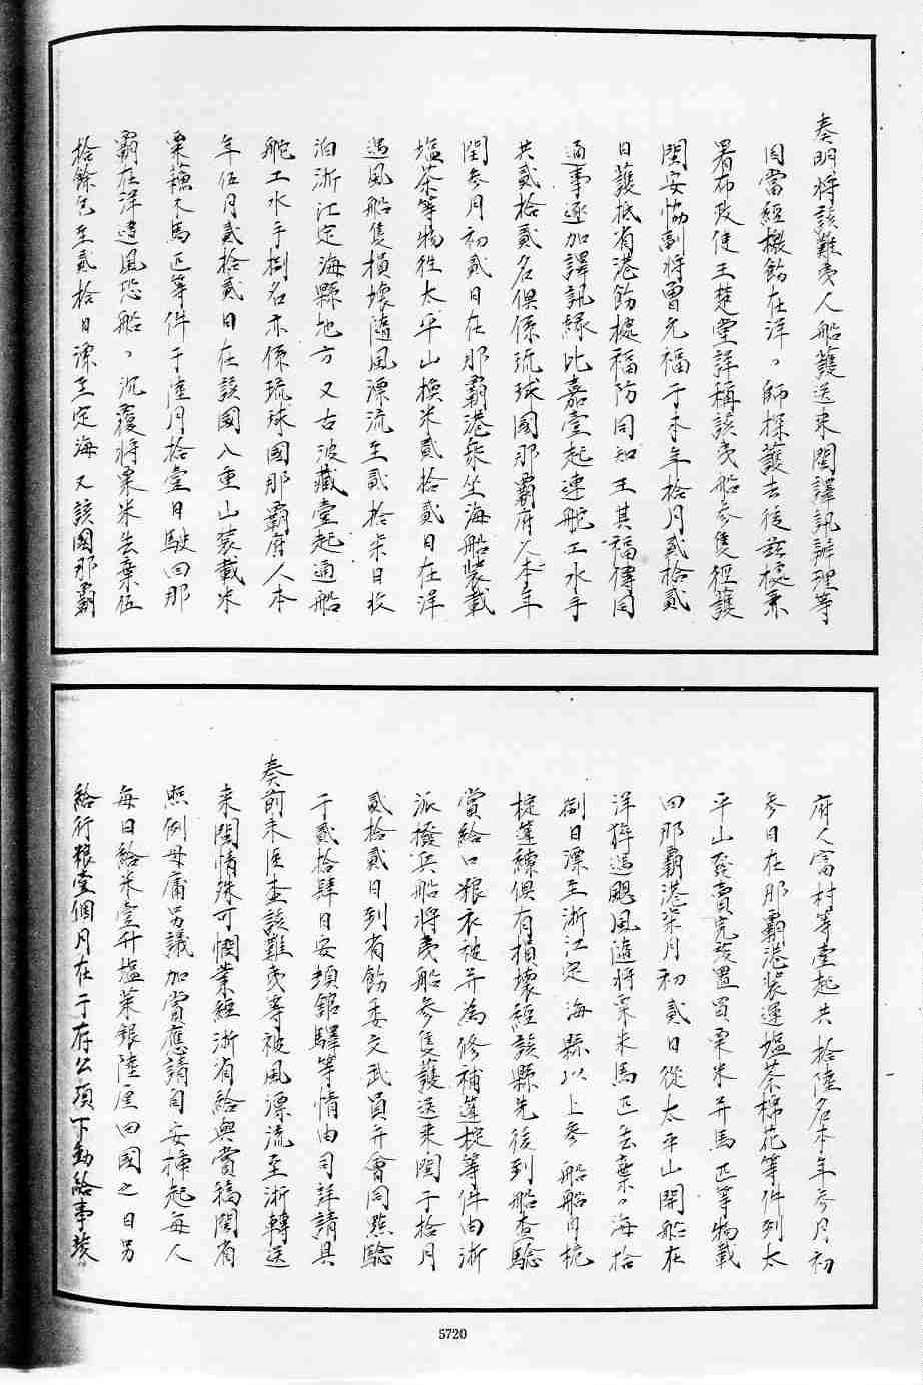 奏明將該難夷人船護送來閩譯訊辦理等
因當經檄飭在洋舟師探護去後茲據兼
署布政使王楚堂詳稱該夷船參隻經護
閩安協副將曾允福于本年拾月貳拾貳
日護抵省港飭據福防同知王其福傳同
通事逐加譯訊緣比嘉壹起連舵工水手
共貳拾貳名俱係琉球國那霸府人本年
閏參月初貳日在那霸港眾坐海船裝載
塩茶等物往太平山換米貳拾貳日在洋
遇風船隻損壞隨風漂流至貳拾柒日收
泊浙江定海縣地方又古波藏壹起通船
舵工水手捌名亦係琉球國那霸府人本
年伍月貳拾貳日在該國八重山裝載米
粟蘓木馬匹等件于陸月拾壹日駛回那
霸在洋遭風恐船沉覆將粟米丟棄伍
拾餘包至貳拾日漂至定海又該國那霸
府人富村等壹起共拾陸名本年參月初
參日在那霸港裝運塩茶棉花等件到太
平山發賣完竣置買粟米并馬匹等物載
回那霸港柒月初貳日從太平山開船在
洋猝遇颶風隨將粟米馬匹丟棄海拾
捌日漂至浙江定海縣以上參船船內桅
椗篷繚俱有損壞經該縣先後到船查驗
當給口粮衣被并為修補篷椗等件由浙
派撥兵船將夷船參隻護送來閩于拾月
貳拾貳日到省飭委文武員弁會同點驗
于貳拾肆日安頓館驛等情由司詳請具
奏前來臣查該難夷等被風漂流至浙轉送
來閩情殊可憫業經浙省給與賞犒閩省
照例毋庸另議加賞應請自安揷起每人
每日給米壹升塩菜銀陸厘回國之日另
給行粮壹個月在于存公項下動給事竣
5720